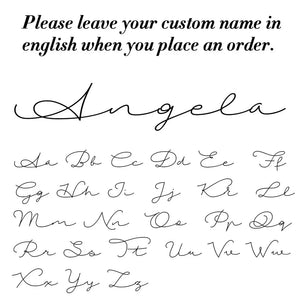 Please leave your custom name in
english when you place an order.
Angela
Aa Bb Cc Dd Ee Ff
Gg Hh Ii Jj Kk Ll
Mm Nn Oo Pp Qq
Rr Ss Tt Uu Vv Ww
Xx Yy Zz